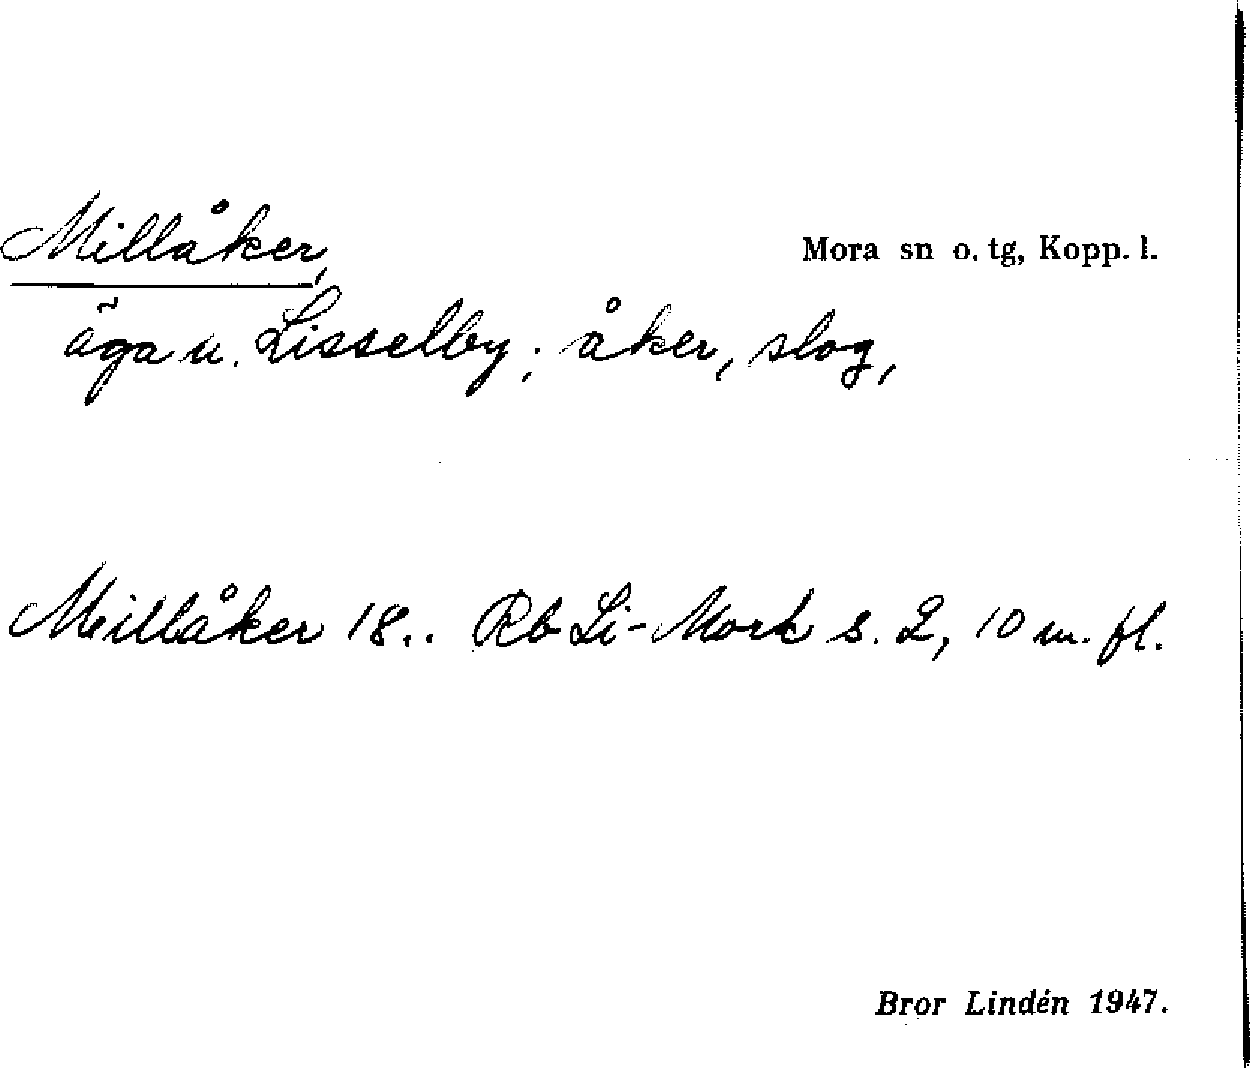 Millåker,
Mora sn o. tg, Kopp. l.
äga u. Lisselby; åker, slog,
Millåker 18.. Rb Li-Mork s. 2, 10 m. fl.
Bror Lindén 1947.